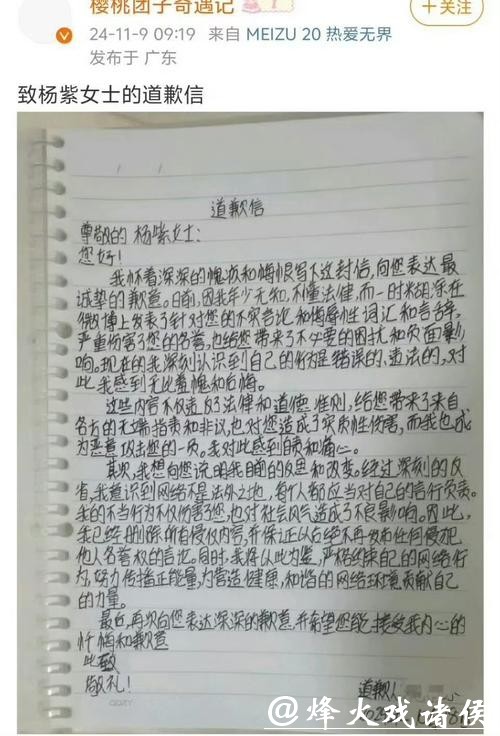 樱桃团子奇遇记
+关注
24-11-9 09:19 来自 MEIZU 20 热爱无界
发布于 广东
致杨紫女士的道歉信
道歉信
尊敬的 杨紫女士：
您好！
我怀着深深的愧疚和悔恨写下这封信，向您表达最
诚挚的歉意。日前，因我年少无知，不懂法律，而一时糊涂在
微博上发表了针对您的不实言论和侮辱性词汇和言语等，
严重伤害了您的名誉，也给您带来了不必要的困扰和负面影
响。现在的我深刻认识到自己的行为是错误的、违法的，对
此我感到无比羞愧和后悔。
这些内容不仅违反了法律和道德准则，给您带来了来自
各方的无端指责和非议，也对您造成了实质性伤害，而我也成
为恶意攻击您的一员。我对此感到自责和痛心。
其次，我想向您说明我目前的反思和改变。经过深刻的反
省，我意识到网络不是法外之地，每个人都应当对自己的言行负责。
我的不当行为不仅伤害了您，也对社会风气造成了不良影响。因此，
我已经删除所有侵权内容，并保证从今以后绝不再发布任何侵犯
他人名誉权的言论。同时，我将以此为鉴，严格约束自己的网络行
为，努力传播正能量，为营造健康，和谐的网络环境贡献自己
的力量。
最后，再次向您表达深深的歉意，并希望您能接受我内心的
忏悔和歉意
此致
敬礼！
道歉人
@烽火戏诸侯